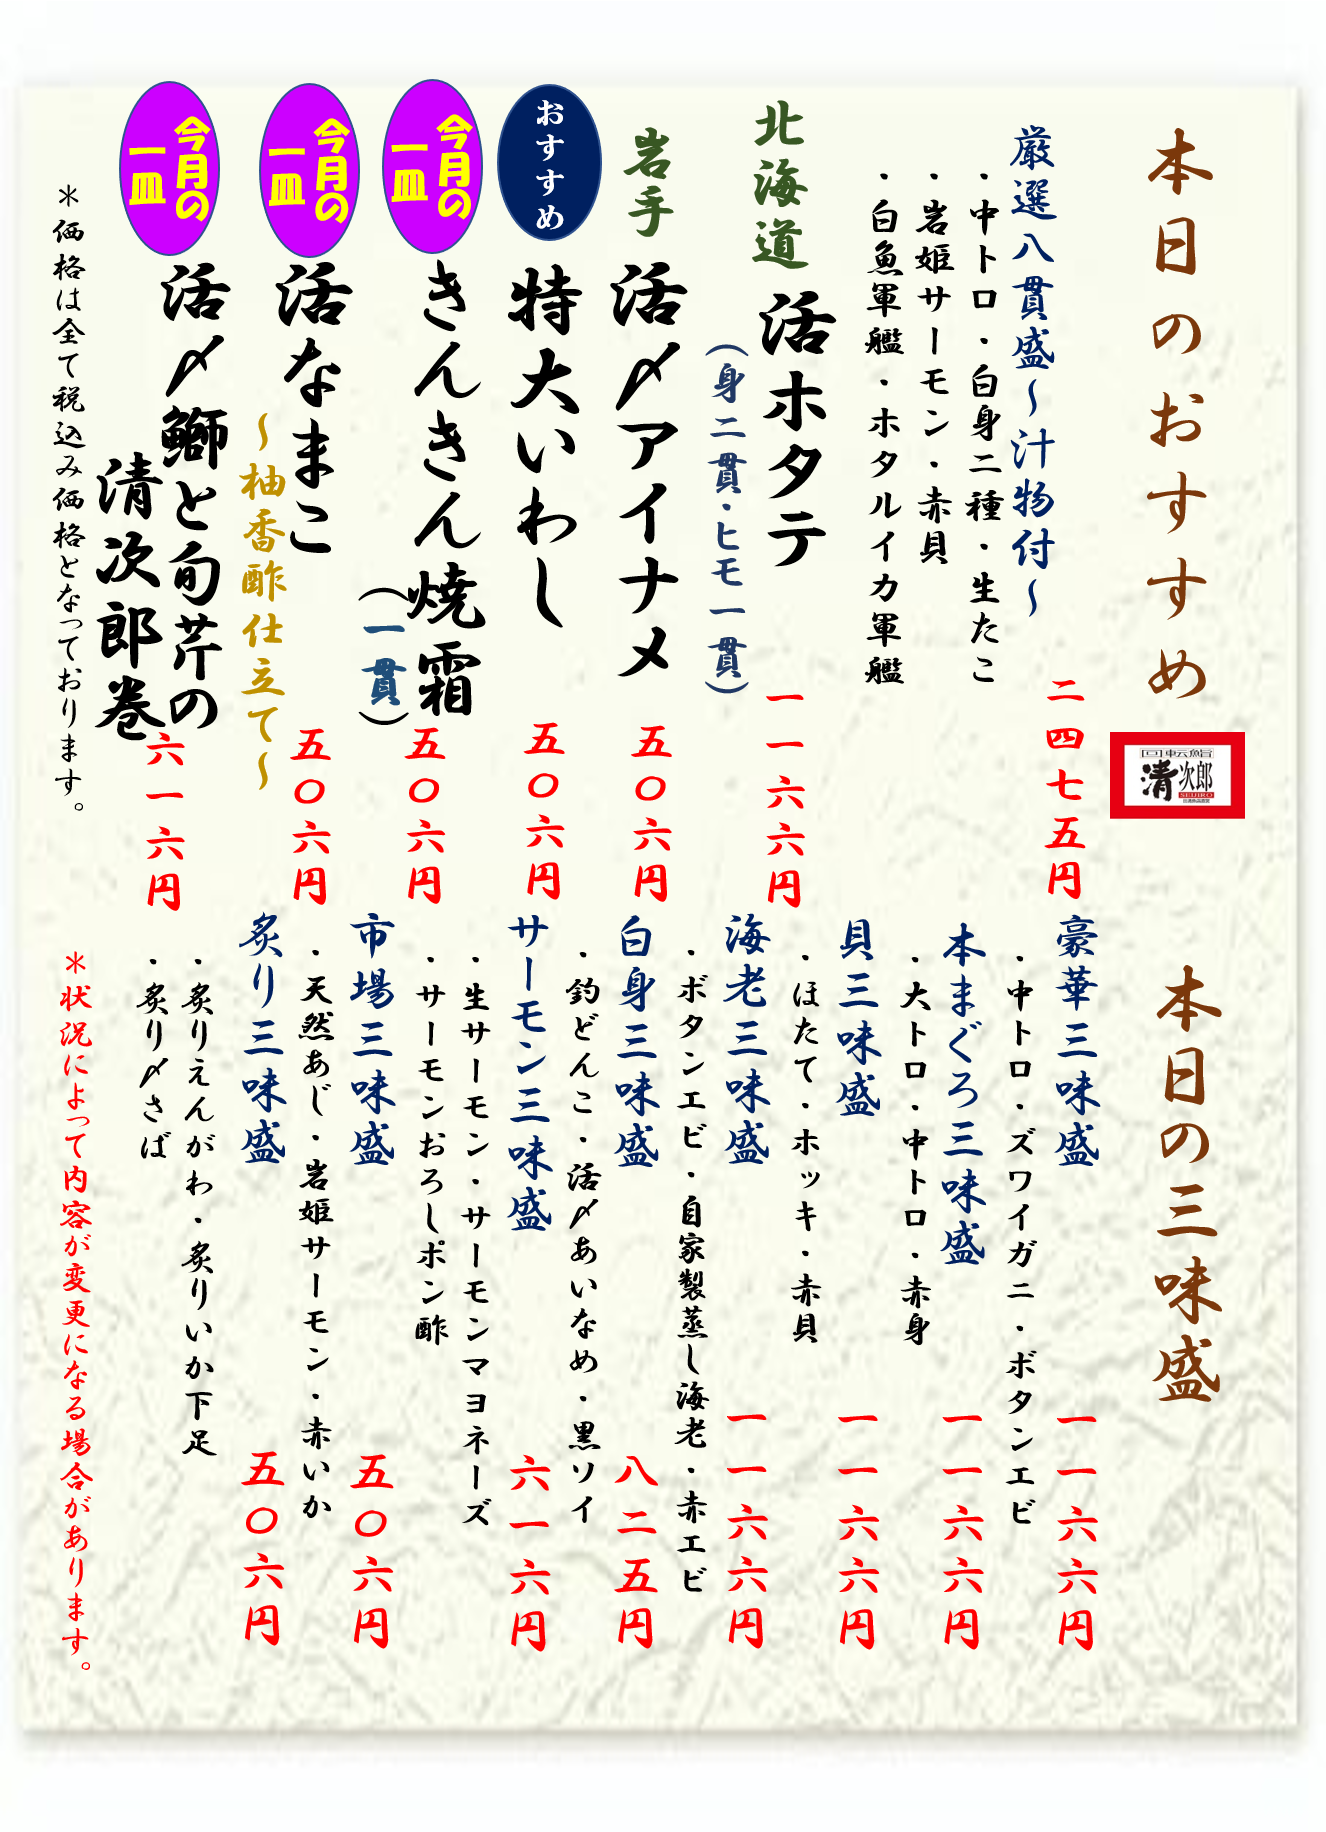 本日のおすすめ
回転鮨
清次郎
SEIJIRO
厳選八貫盛～汁物付～
二四七五円
・中トロ・白身二種・生たこ
・岩姫サーモン・赤貝
・白魚軍艦・ホタルイカ軍艦
北海道
活ホタテ
一一六六円
（身二貫・ヒモ一貫）
岩手
活〆アイナメ
五〇六円
おすすめ
特大いわし
五〇六円
今月の
一皿
きんきん焼霜
（一貫）
五〇六円
今月の
一皿
活なまこ
～柚香酢仕立て～
五〇六円
今月の
一皿
活〆鰤と旬芹の
清次郎巻
六一六円
＊価格は全て税込み価格となっております。
本日の三味盛
豪華三味盛
一一六六円
・中トロ・ズワイガニ・ボタンエビ
本まぐろ三味盛
一一六六円
・大トロ・中トロ・赤身
貝三味盛
一一六六円
・ほたて・ホッキ・赤貝
海老三味盛
一一六六円
・ボタンエビ・自家製蒸し海老・赤エビ
白身三味盛
八二五円
・釣どんこ・活〆あいなめ・黒ソイ
サーモン三味盛
六一六円
・生サーモン・サーモンマヨネーズ
・サーモンおろしポン酢
市場三味盛
五〇六円
・天然あじ・岩姫サーモン・赤いか
炙り三味盛
五〇六円
・炙りえんがわ・炙りいか下足
・炙り〆さば
＊状況によって内容が変更になる場合があります。